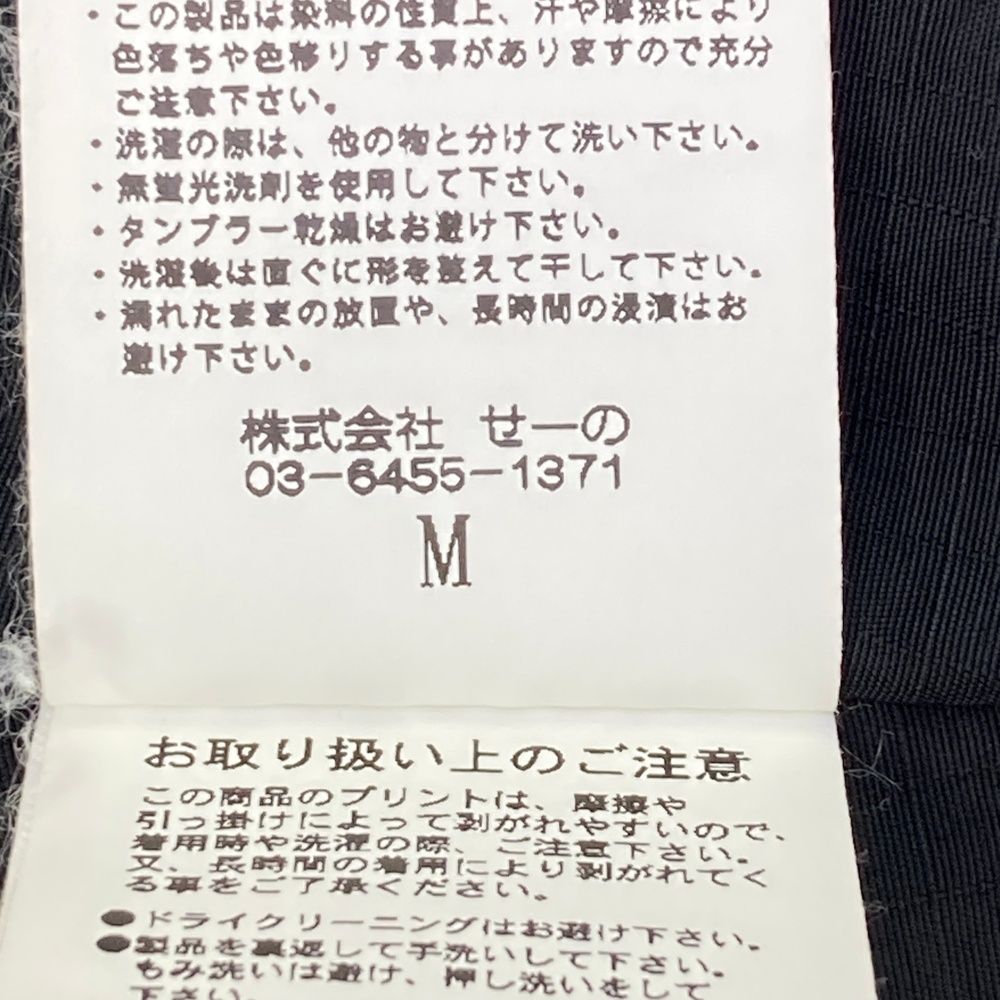 ・この製品は染料の性質上、汗や摩擦により
色落ちや色移りする事がありますので充分
ご注意下さい。
・洗濯の際は、他の物と分けて洗い下さい。
・無蛍光洗剤を使用して下さい。
・タンブラー乾燥はお避け下さい。
・洗濯後は直ぐに形を整えて干して下さい。
・濡れたままの放置や、長時間の浸漬はお
避け下さい。
株式会社 せーの
03-6455-1371
M
お取り扱い上のご注意
この商品のプリントは、摩擦や
引っ掛けによって剥がれやすいので、
着用時や洗濯の際、ご注意下さい。
又、長時間の着用により剥がれてく
る事をご了承ください。
●ドライクリーニングはお避け下さい。
●製品を裏返して手洗いして下さい。
もみ洗いは避け、押し洗いをして
下さい。